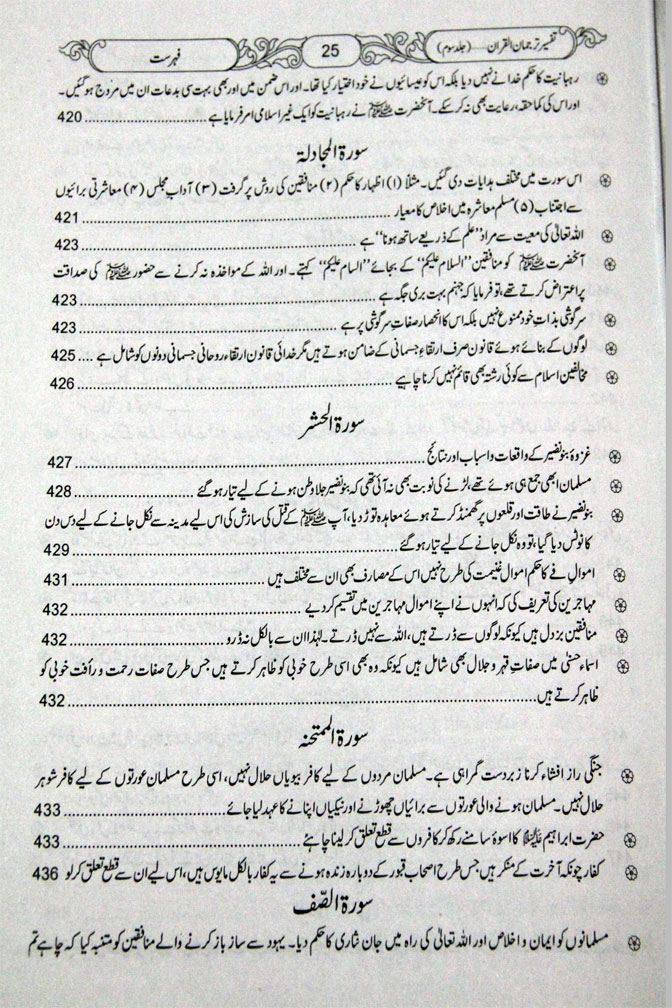 تفسیر ترجمان القرآن (جلد سوم) 25 فہرست
رہبانیت کا حکم خدا نے نہیں دیا بلکہ اس کو عیسائیوں نے خود اختیار کیا تھا۔ اور اس ضمن میں اور بھی بہت سی بدعات ان میں مروج ہو گئیں۔
اور اس کی کما حقہ، رعایت بھی نہ کر سکے۔ آنحضرت ﷺ نے رہبانیت کو ایک غیر اسلامی امر فرمایا ہے ........ 420
سورۃ المجادلۃ
اس سورت میں مختلف ہدایات دی گئیں۔ مثلاً (۱) اظہار کا حکم (۲) منافقین کی روش پر گرفت (۳) آداب مجلس (۴) معاشرتی برائیوں
سے اجتناب (۵) مسلم معاشرہ میں اخلاص کا معیار ........ 421
اللہ تعالیٰ کی معیت سے مراد ”علم کے ذریعے ساتھ ہونا“ ہے ........ 423
آنحضرت ﷺ کو منافقین ”السلام علیکم“ کے بجائے ”السام علیکم“ کہتے۔ اور اللہ کے مواخذہ نہ کرنے سے حضور ﷺ کی صداقت
پر اعتراض کرتے تھے، تو فرمایا کہ جہنم بہت بری جگہ ہے ........ 423
سرگوشی بذات خود ممنوع نہیں بلکہ اس کا انحصار صفات سرگوشی پر ہے ........ 423
لوگوں کے بنائے ہوئے قانون صرف ارتقاء جسمانی کے ضامن ہوتے ہیں مگر خدائی قانون ارتقاء روحانی جسمانی دونوں کو شامل ہے ... 425
مخالفین اسلام سے کوئی رشتہ بھی قائم نہیں کرنا چاہیے ........ 426
سورۃ الحشر
غزوۂ بنو نضیر کے واقعات و اسباب اور نتائج ........ 427
مسلمان ابھی جمع ہی ہوئے تھے، لڑنے کی نوبت بھی نہ آئی تھی کہ بنو نضیر جلا وطن ہونے کے لیے تیار ہو گئے ........ 428
بنو نضیر نے طاقت اور قلعوں پر گھمنڈ کرتے ہوئے معاہدہ توڑ دیا، آپ ﷺ کے قتل کی سازش کی اس لیے مدینہ سے نکل جانے کے لیے دس دن
کا نوٹس دیا گیا، تو وہ نکل جانے کے لیے تیار ہو گئے ........ 429
اموال فے کا حکم اموال غنیمت کی طرح نہیں اس کے مصارف بھی ان سے مختلف ہیں ........ 431
مہاجرین کی تعریف کی کہ انہوں نے اپنے اموال مہاجرین میں تقسیم کر دیے ........ 432
منافقین بزدل ہیں کیونکہ لوگوں سے ڈرتے ہیں، اللہ سے نہیں ڈرتے۔ لہٰذا ان سے بالکل نہ ڈرو ........ 432
اسماء حسنیٰ میں صفات قہر و جلال بھی شامل ہیں کیونکہ وہ بھی اسی طرح خوبی کو ظاہر کرتے ہیں جس طرح صفات رحمت و رأفت خوبی کو
ظاہر کرتے ہیں ........ 432
سورۃ الممتحنہ
جنگی راز افشاء کرنا زبردست گمراہی ہے۔ مسلمان مردوں کے لیے کافر بیویاں حلال نہیں، اسی طرح مسلمان عورتوں کے لیے کافر شوہر
حلال نہیں۔ مسلمان ہونے والی عورتوں سے برائیاں چھوڑنے اور نیکیاں اپنانے کا عہد لیا جائے ........ 433
حضرت ابراہیم علیہ السلام کا اسوۂ سامنے رکھ کر کافروں سے قطع تعلق کر لینا چاہئے ........ 433
کفار چونکہ آخرت کے منکر ہیں، جس طرح اصحاب قبور کے دوبارہ زندہ ہونے سے یہ کفار بالکل مایوس ہیں، اس لیے ان سے قطع تعلق کر لو 436
سورۃ الصف
مسلمانوں کو ایمان و اخلاص اور اللہ تعالیٰ کی راہ میں جان نثاری کا حکم دیا۔ یہود سے ساز باز کرنے والے منافقین کو متنبہ کیا کہ چاہے تم